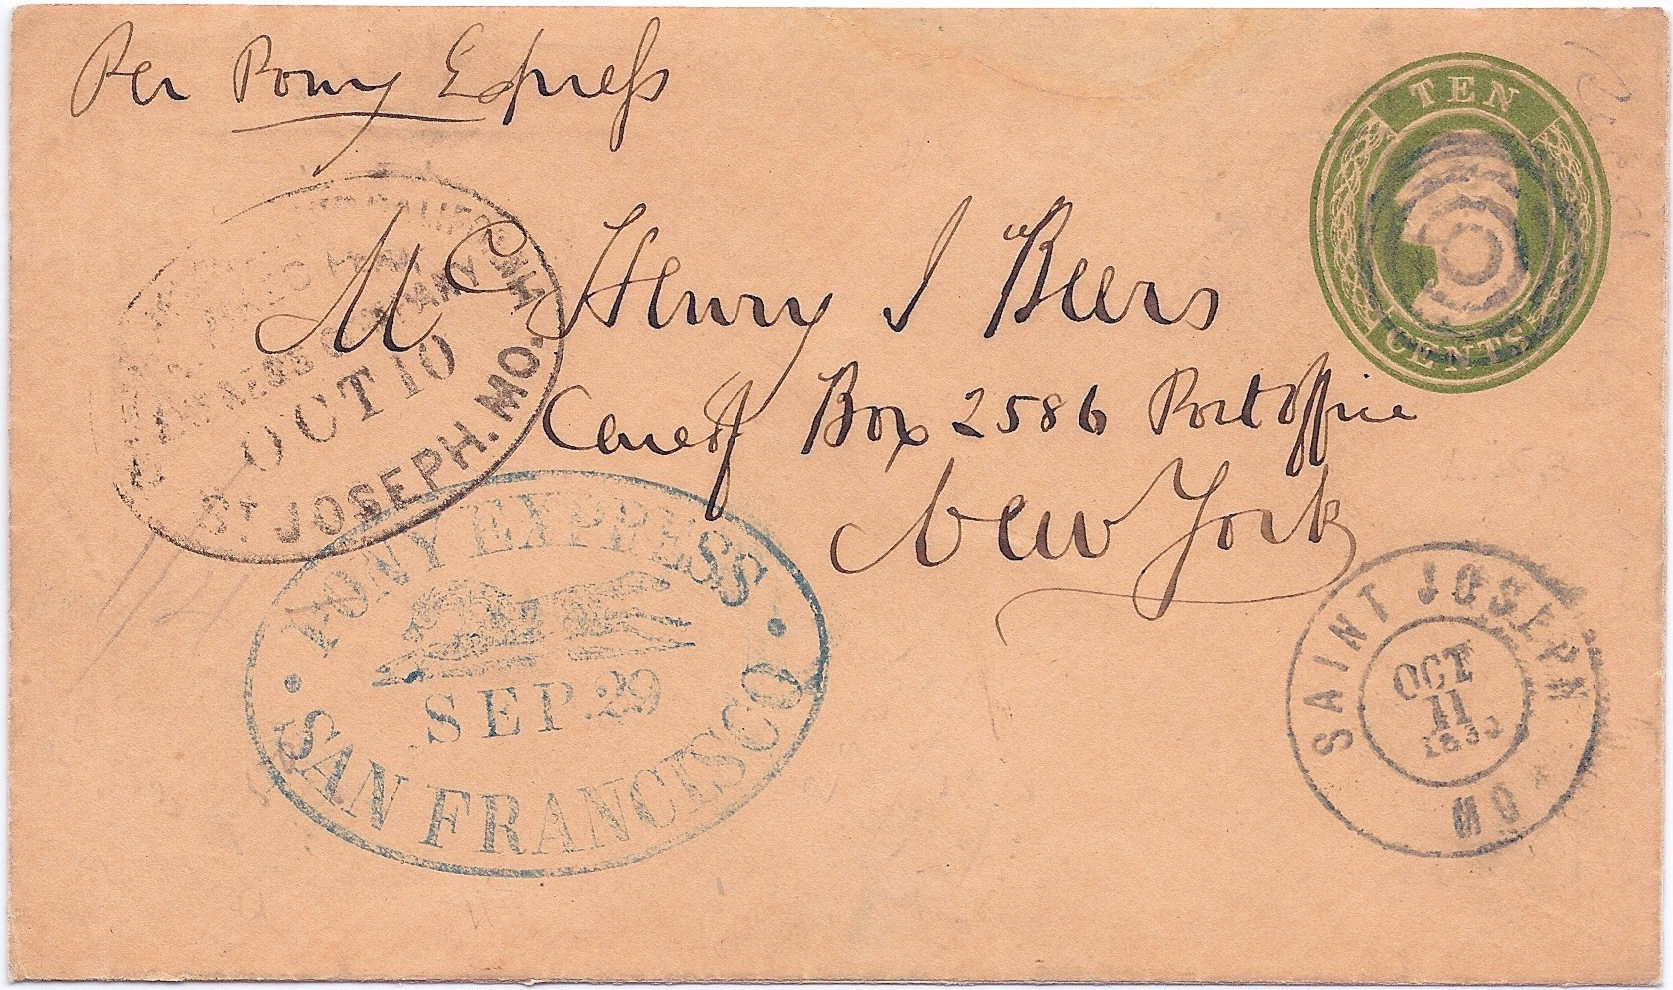 Per Pony Express
TEN
CENTS
Mr Henry I Beers
Care of Box 2586 Post office
New York
OCT 10
ST JOSEPH. MO.
PONY EXPRESS
SEP. 29
SAN FRANCISCO
SAINT JOSEPH
OCT
11
MO